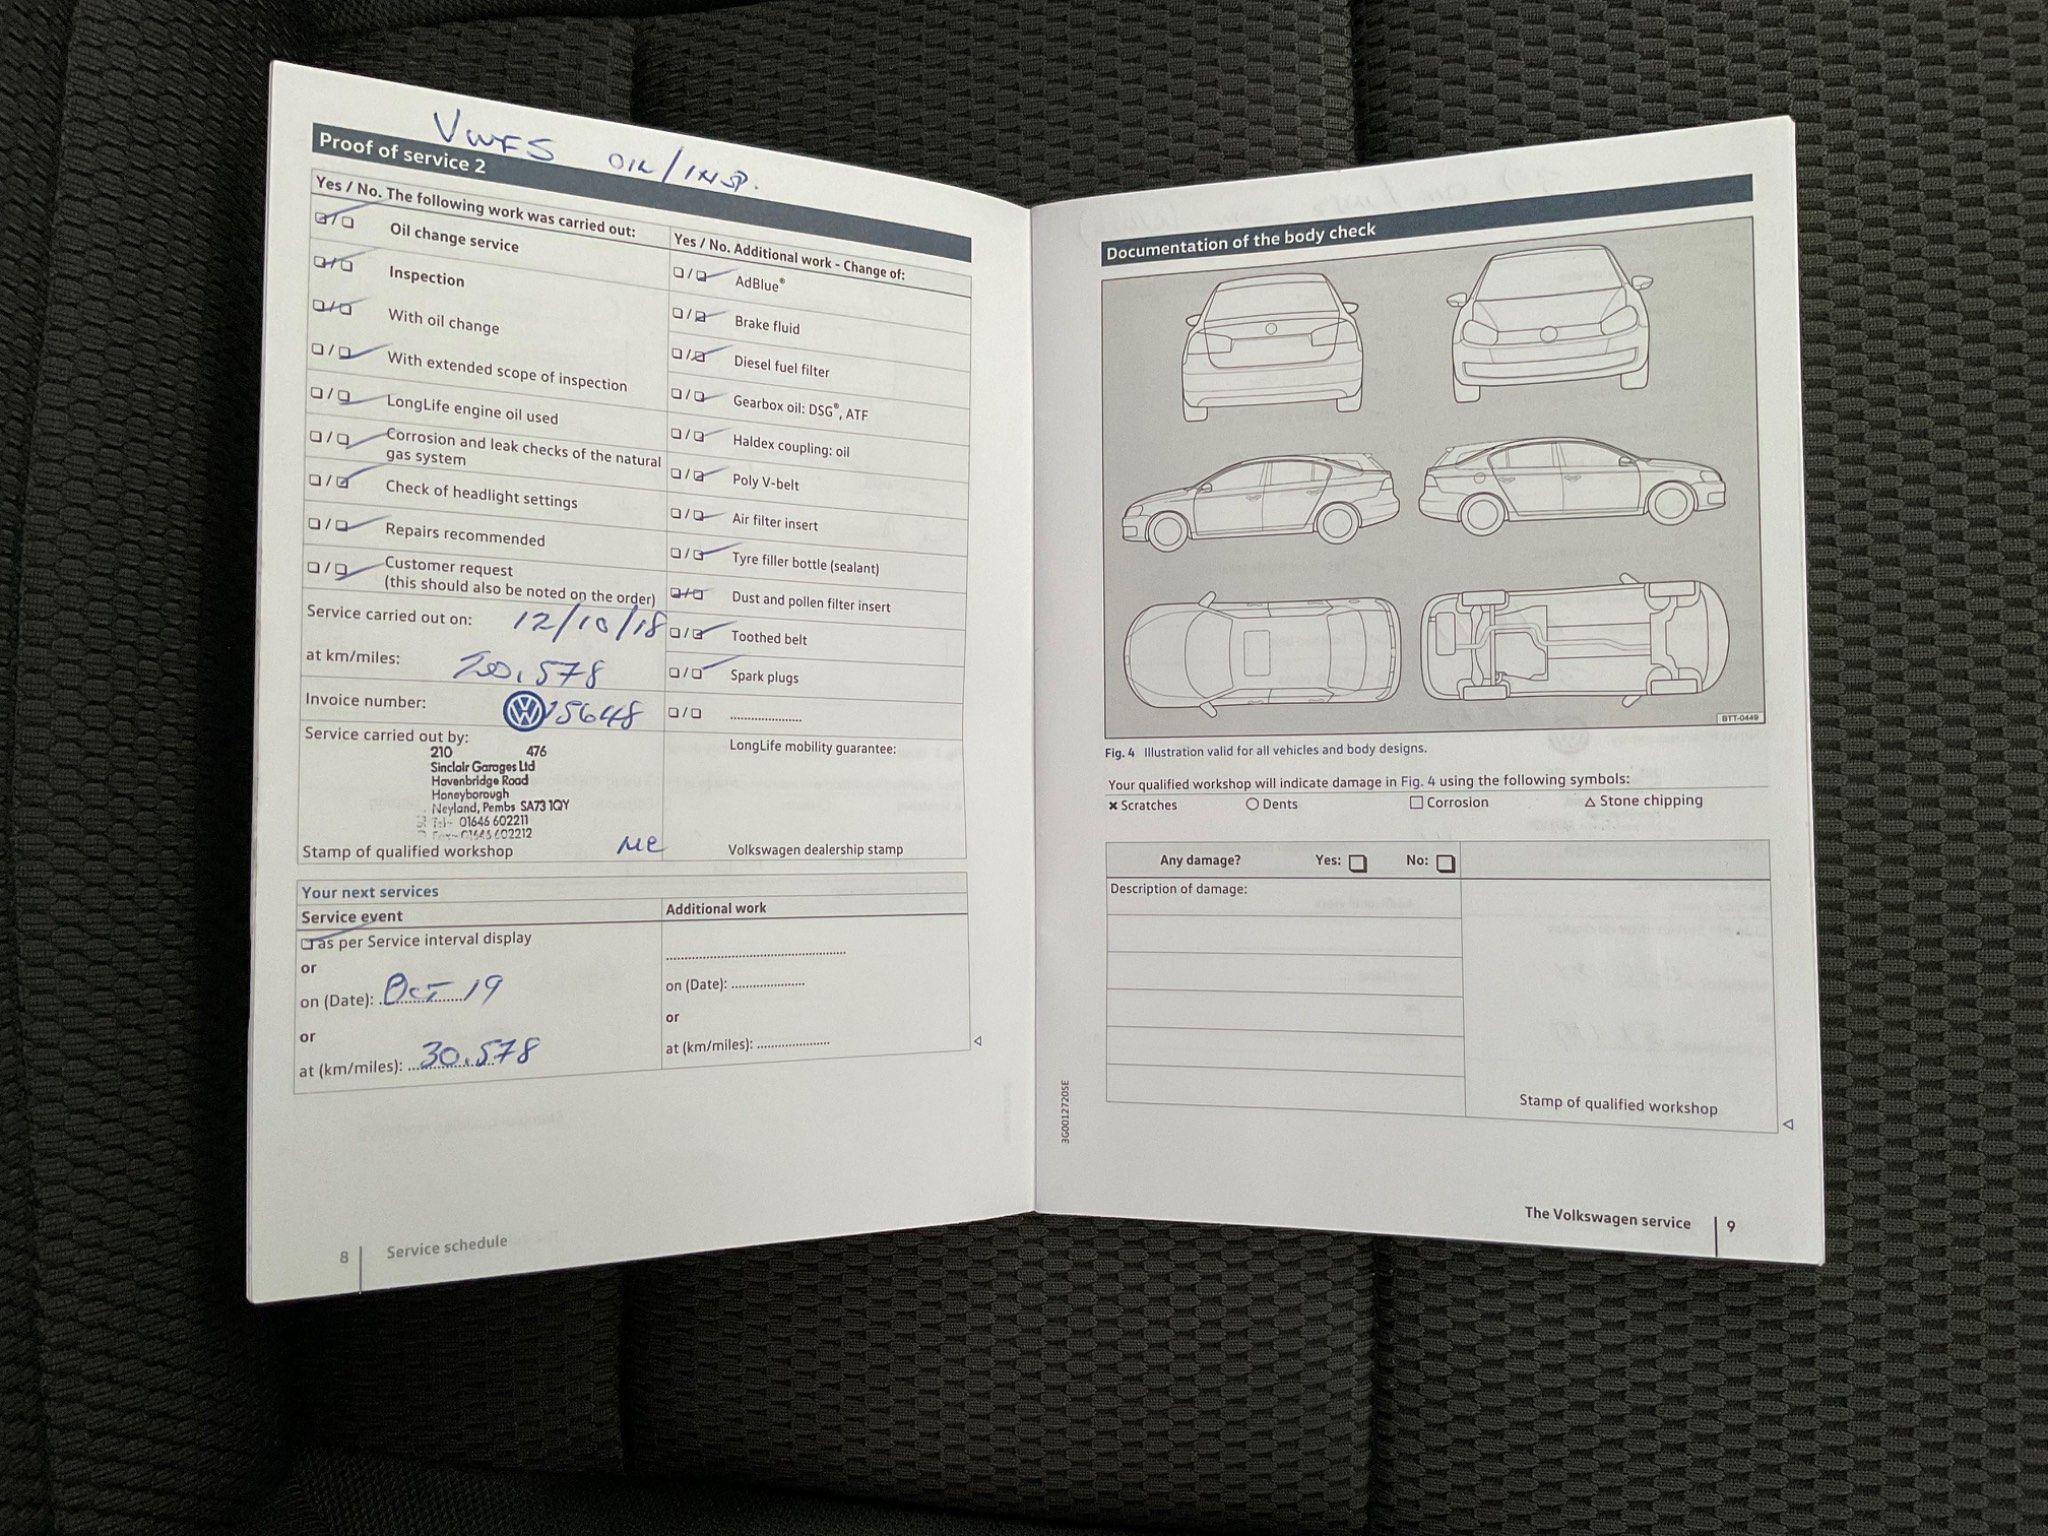 VWFS OIL/INSP.
Proof of service 2
Yes / No. The following work was carried out:
Oil change service
Inspection
With oil change
With extended scope of inspection
LongLife engine oil used
Corrosion and leak checks of the natural
gas system
Check of headlight settings
Repairs recommended
Customer request
(this should also be noted on the order)
Service carried out on: 12/10/18
at km/miles: 20,578
Invoice number: 15648
Service carried out by:
210 476
Sinclair Garages Ltd
Havenbridge Road
Honeyborough
Neyland, Pembs SA73 1QY
Tel- 01646 602211
01646 602212
Stamp of qualified workshop
Yes / No. Additional work - Change of:
AdBlue®
Brake fluid
Diesel fuel filter
Gearbox oil: DSG®, ATF
Haldex coupling: oil
Poly V-belt
Air filter insert
Tyre filler bottle (sealant)
Dust and pollen filter insert
Toothed belt
Spark plugs
LongLife mobility guarantee:
Volkswagen dealership stamp
Your next services
Service event
as per Service interval display
or
on (Date): OCT 19
or
at (km/miles): 30.578
Additional work
on (Date):
or
at (km/miles):
8 Service schedule
Documentation of the body check
BTT-0449
Fig. 4 Illustration valid for all vehicles and body designs.
Your qualified workshop will indicate damage in Fig. 4 using the following symbols:
× Scratches ○ Dents □ Corrosion △ Stone chipping
Any damage? Yes: No:
Description of damage:
Stamp of qualified workshop
3G0012720SE
The Volkswagen service 9